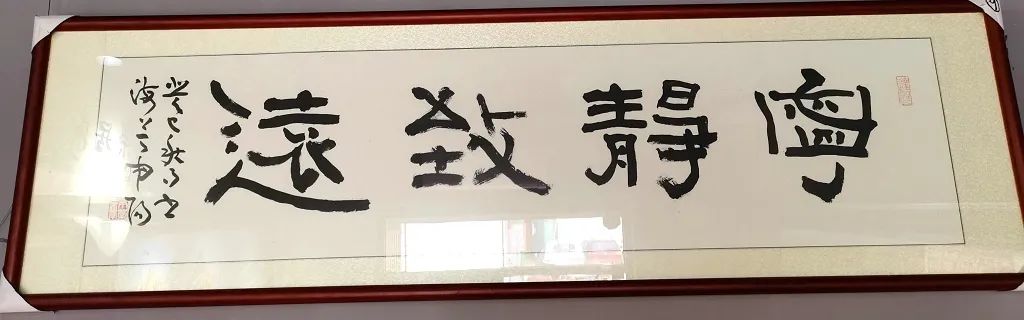 寧靜致遠
癸巳秋月書